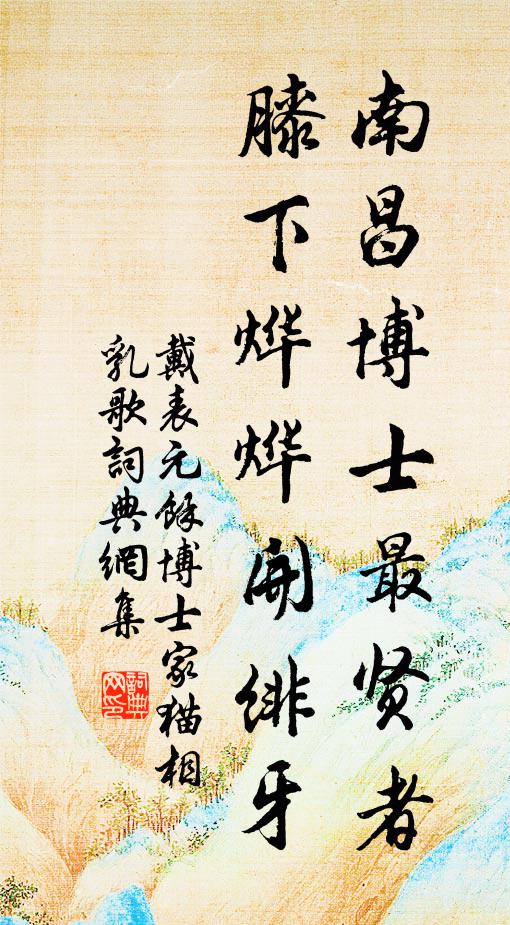 南昌博士最贤者
膝下烨烨开绯牙
戴表元馀博士家猫相
乳歌詞典網集
詞典網印